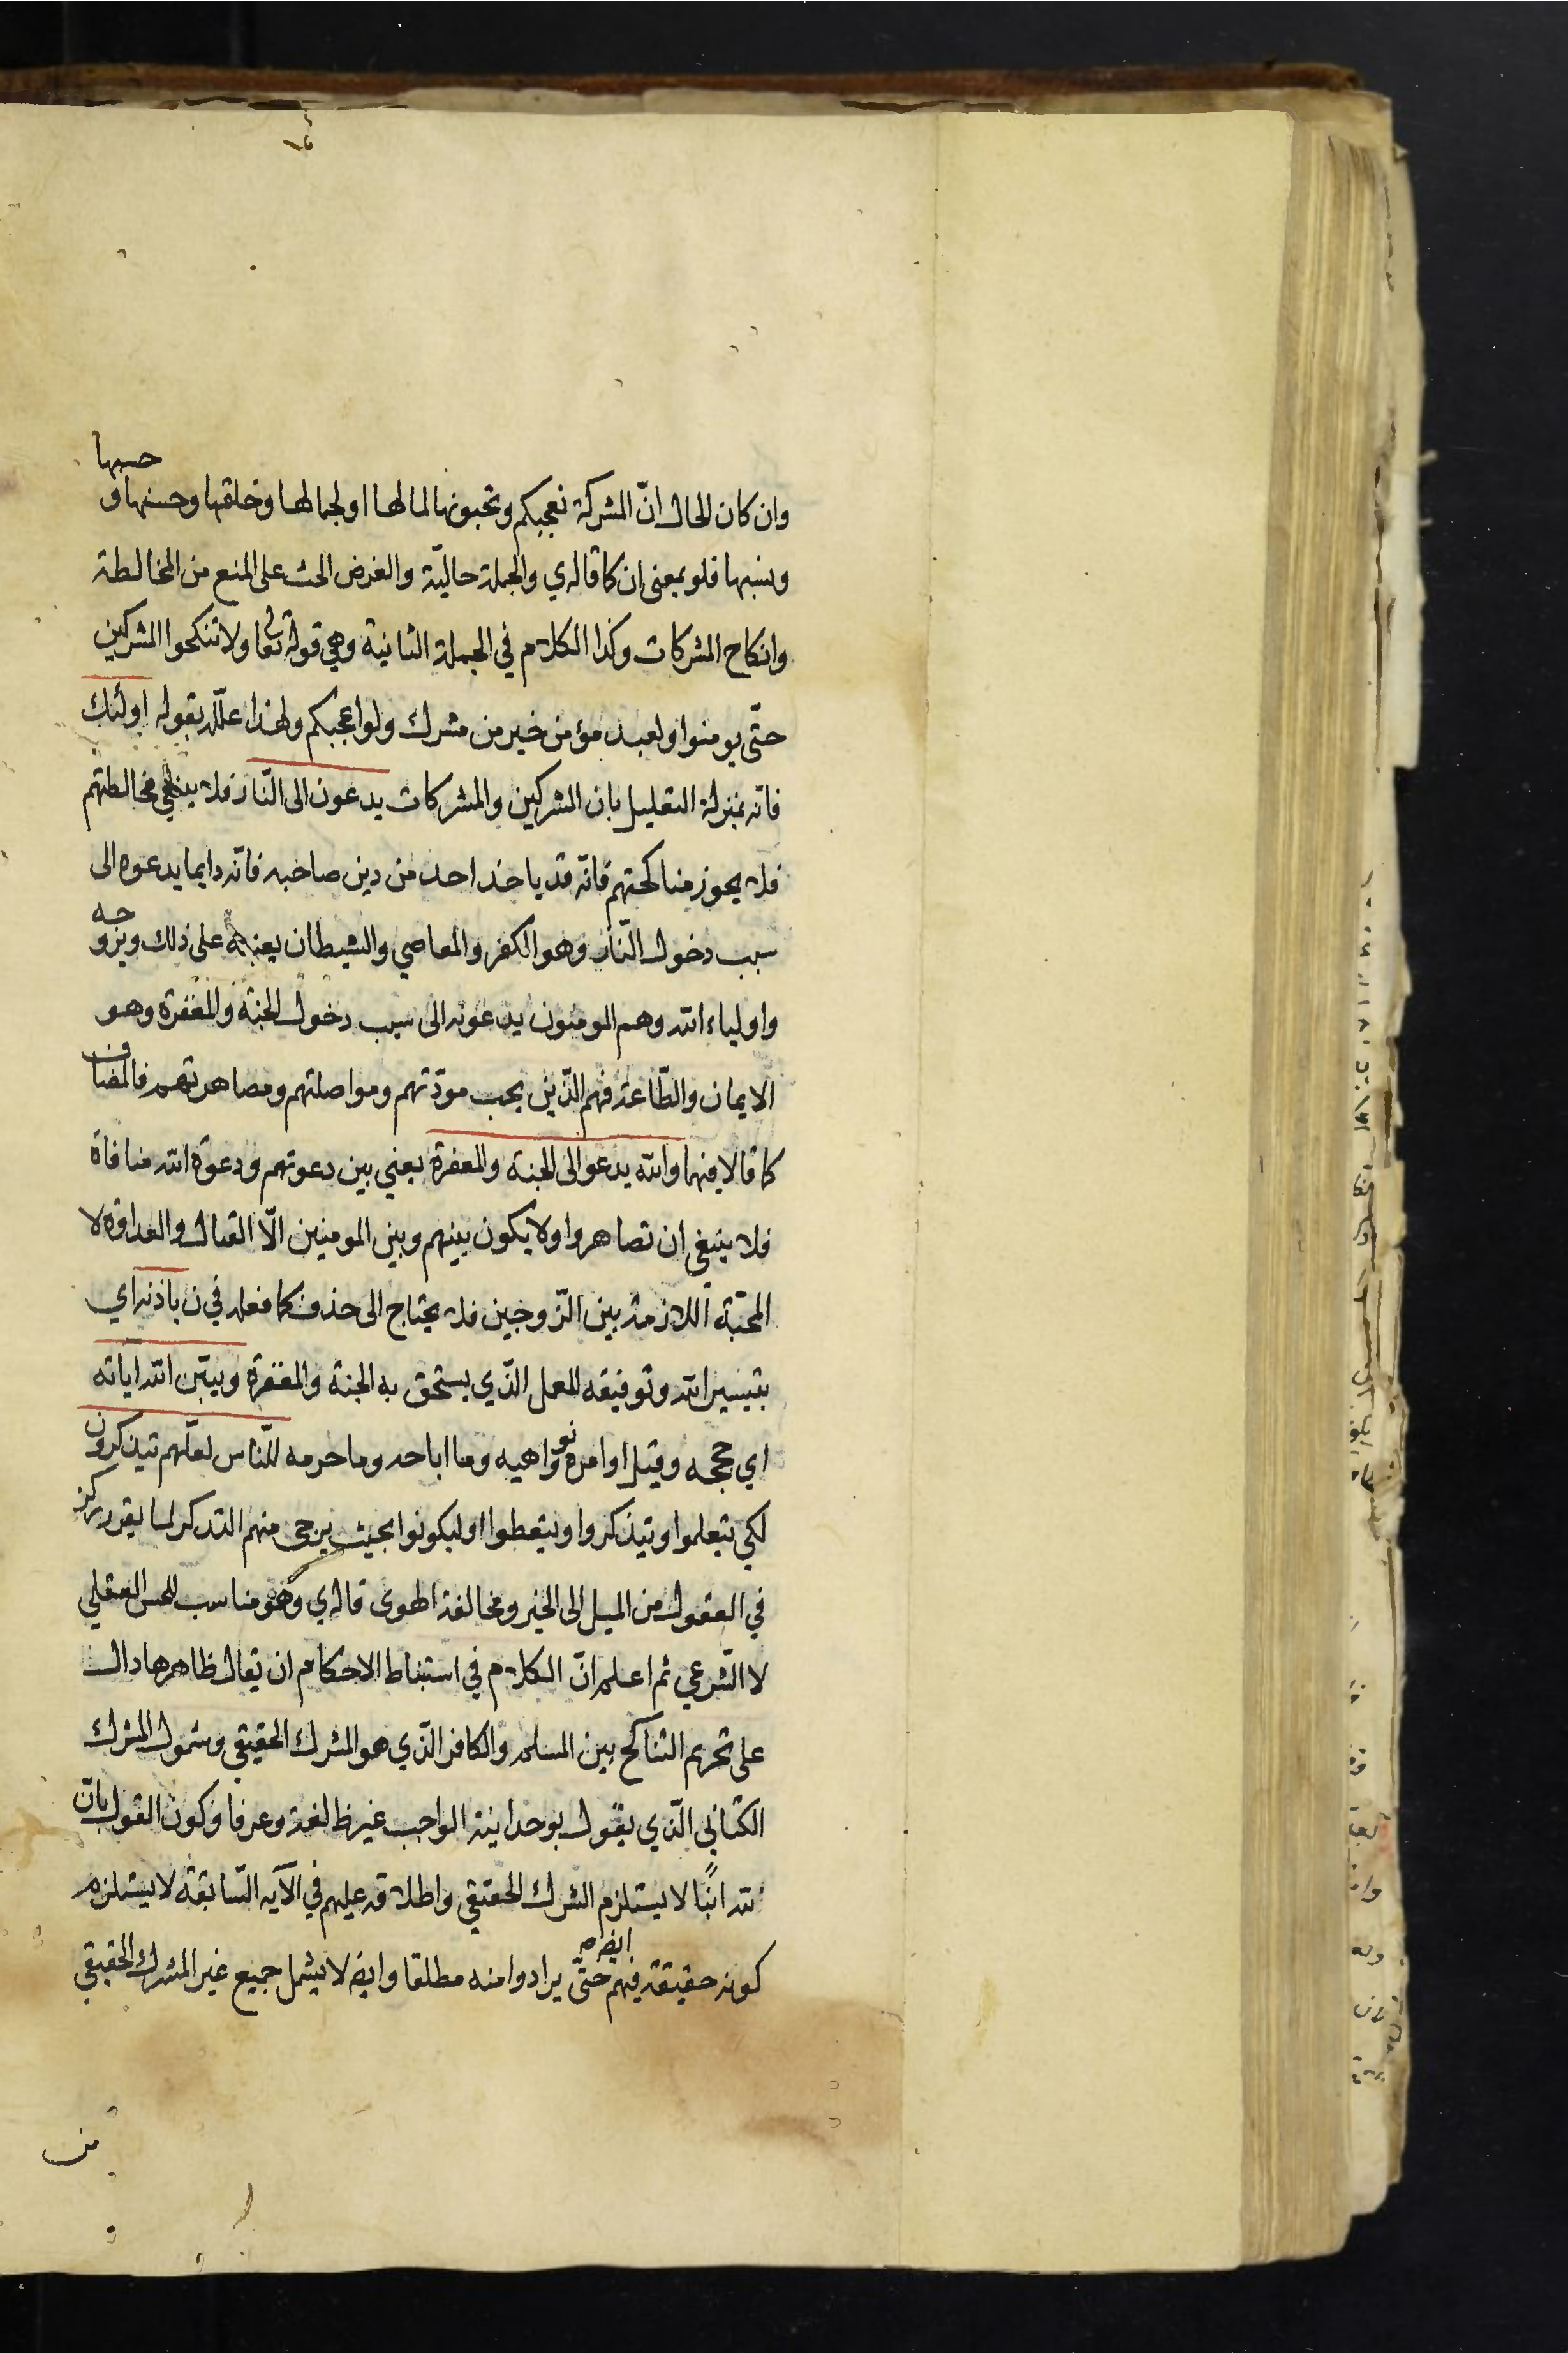 وان كان الحال انّ المشركة تعجبكم وتحبونها لما لها او لجمالها وخلقها وحسنها و حسبها
ونسبها فلو بمعنى ان كما قاله ي والجملة حاليّة والغرض الحث على المنع من المخالطة
وانكاح المشركات وكذا الكلام في الجملة الثانية وهي قوله تعا ولا تنكحوا المشركين
حتّى يومنوا ولعبد مؤمن خير من مشرك ولو اعجبكم ولهذا علّله بقوله اولئك
فانّه بمنزلة التعليل بان المشركين والمشركات يدعون الى النّار فلا ينبغي مخالطتهم
فلا يجوز مناكحتهم فانّه قد ياخذ احد من دين صاحبه فانّه دايما يدعوه الى
سبب دخول النّار وهو الكفر والمعاصي والشيطان يعينه على ذلك ويزوجه
واولياء الله وهم المومنون يدعونه الى سبب دخول الجنة والمغفرة وهو
الايمان والطّاعة فهم الّذين يجب مودّتهم ومواصلتهم ومصاهرتهم فالمضاف
كما قالا فيهما والله يدعو الى الجنة والمغفرة يعني بين دعوتهم ودعوة الله منافاة
فلا ينبغي ان تصاهروا ولا يكون بينهم وبين المومنين الّا القتال والعداوة لا
المحبّة اللازمة بين الزّوجين فلا يحتاج الى حذف كما فعله في ن باذنه اي
بتيسير الله وتوفيقه للعمل الّذي يستحق به الجنة والمغفرة ويبيّن الله اياته
اي حججه وقيل اوامره ونواهيه وما اباحه وما حرمه للنّاس لعلّهم يتذكرون
لكي يتعلموا ويتذكروا ويتعظوا او ليكونوا بحيث يرجى منهم التذكر لما يقرر ركز
في العقول من الميل الى الخير ومخالفة الهوى قاله ي وهو مناسب للحسن العقلي
لا الشّرعي ثم اعلم انّ الكلام في استنباط الاحكام ان يقال ظاهرها دال
على تحريم التناكح بين المسلم والكافر الّذي هو المشرك الحقيقي وشمول المشرك
الكتابي الّذي يقول بوحدانية الواجب غير ظ لغة وعرفا وكون القول بانّ
لله ابنًا لا يستلزم الشرك الحقيقي واطلاقه عليهم في الآيه السّابقة لا يستلزم
كونه حقيقة فيهم ايض حتّى يرادوا منه مطلقا وايض لا يشمل جميع غير المشرك الحقيقي
من